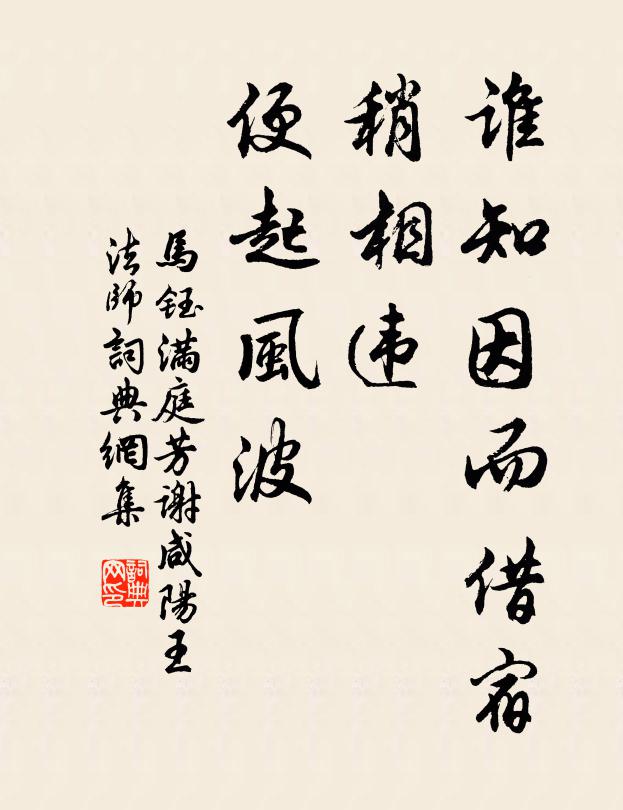 谁知因而借宿
稍相违
便起風波
馬鈺满庭芳谢咸陽王
法師詞典網集
詞典网印